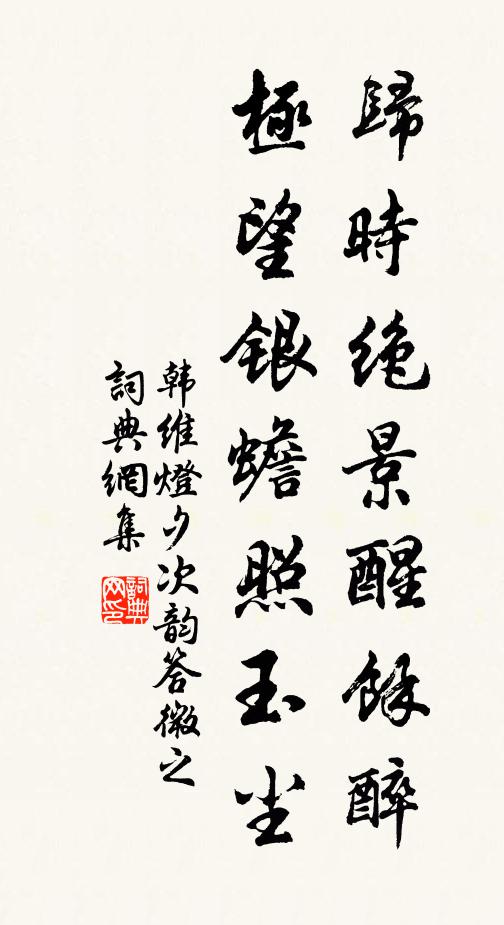 歸時絶景醒餘醉
極望銀蟾照玉尘
韩维燈夕次韵答微之
詞典網集
詞典网印